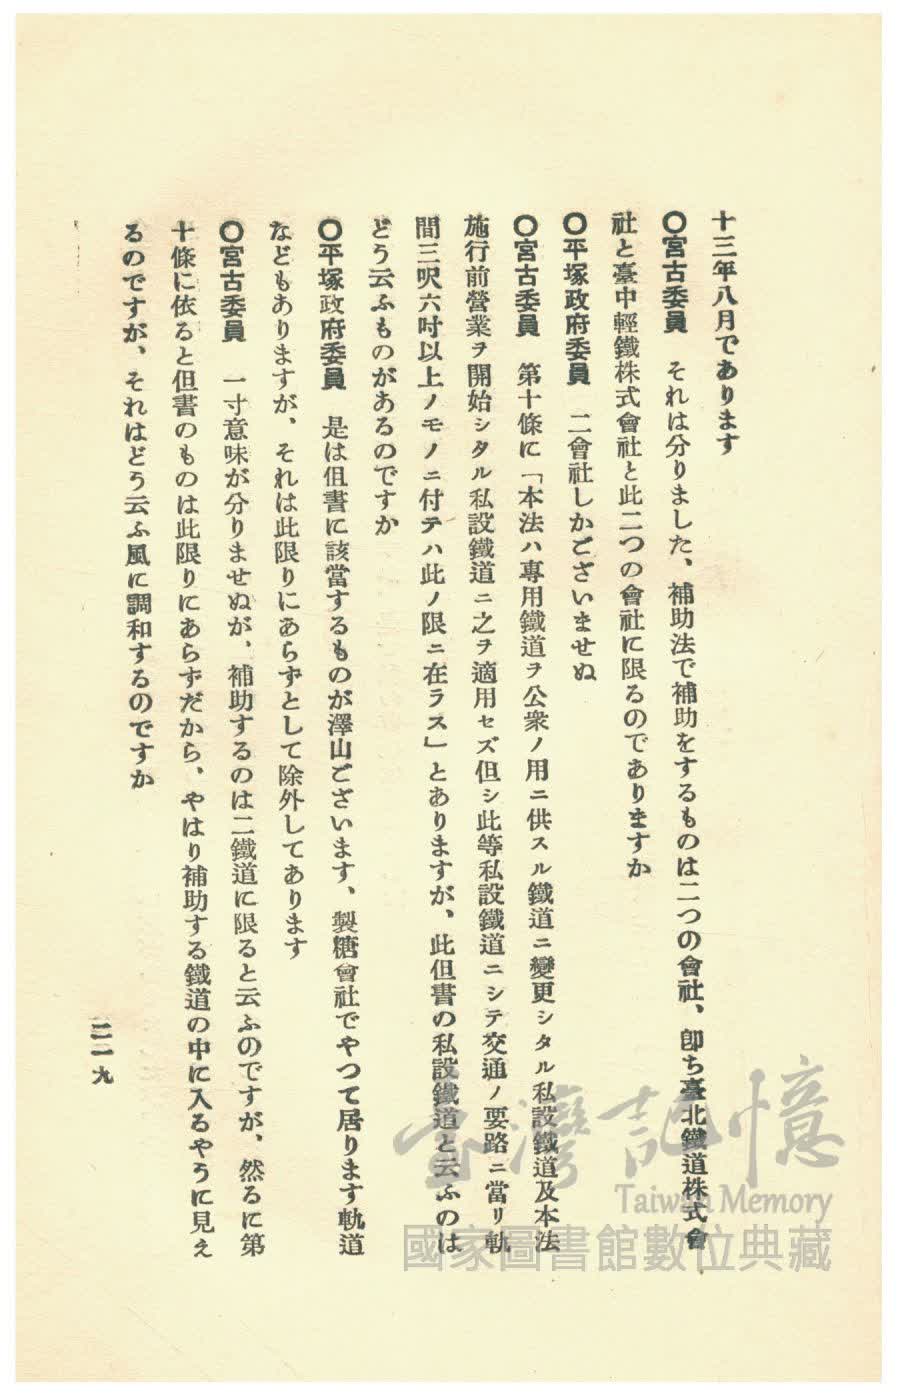 十三年八月であります
〇宮古委員　それは分りました、補助法で補助をするものは二つの會社、卽ち臺北鐵道株式會
社と臺中輕鐵株式會社と此二つの會社に限るのでありますか
〇平塚政府委員　二會社しかございませぬ
〇宮古委員　第十條に「本法ハ專用鐵道ヲ公衆ノ用ニ供スル鐵道ニ變更シタル私設鐵道及本法
施行前營業ヲ開始シタル私設鐵道ニ之ヲ適用セズ但シ此等私設鐵道ニシテ交通ノ要路ニ當リ軌
間三呎六吋以上ノモノニ付テハ此ノ限ニ在ラス」とありますが、此但書の私設鐵道と云ふのは
どう云ふものがあるのですか
〇平塚政府委員　是は但書に該當するものが澤山ございます、製糖會社でやつて居ります軌道
などもありますが、それは此限りにあらずとして除外してあります
〇宮古委員　一寸意味が分りませぬが、補助するのは二鐵道に限ると云ふのですが、然るに第
十條に依ると但書のものは此限りにあらずだから、やはり補助する鐵道の中に入るやうに見え
るのですが、それはどう云ふ風に調和するのですか
二一九
臺灣記憶
Taiwan Memory
國家圖書館數位典藏